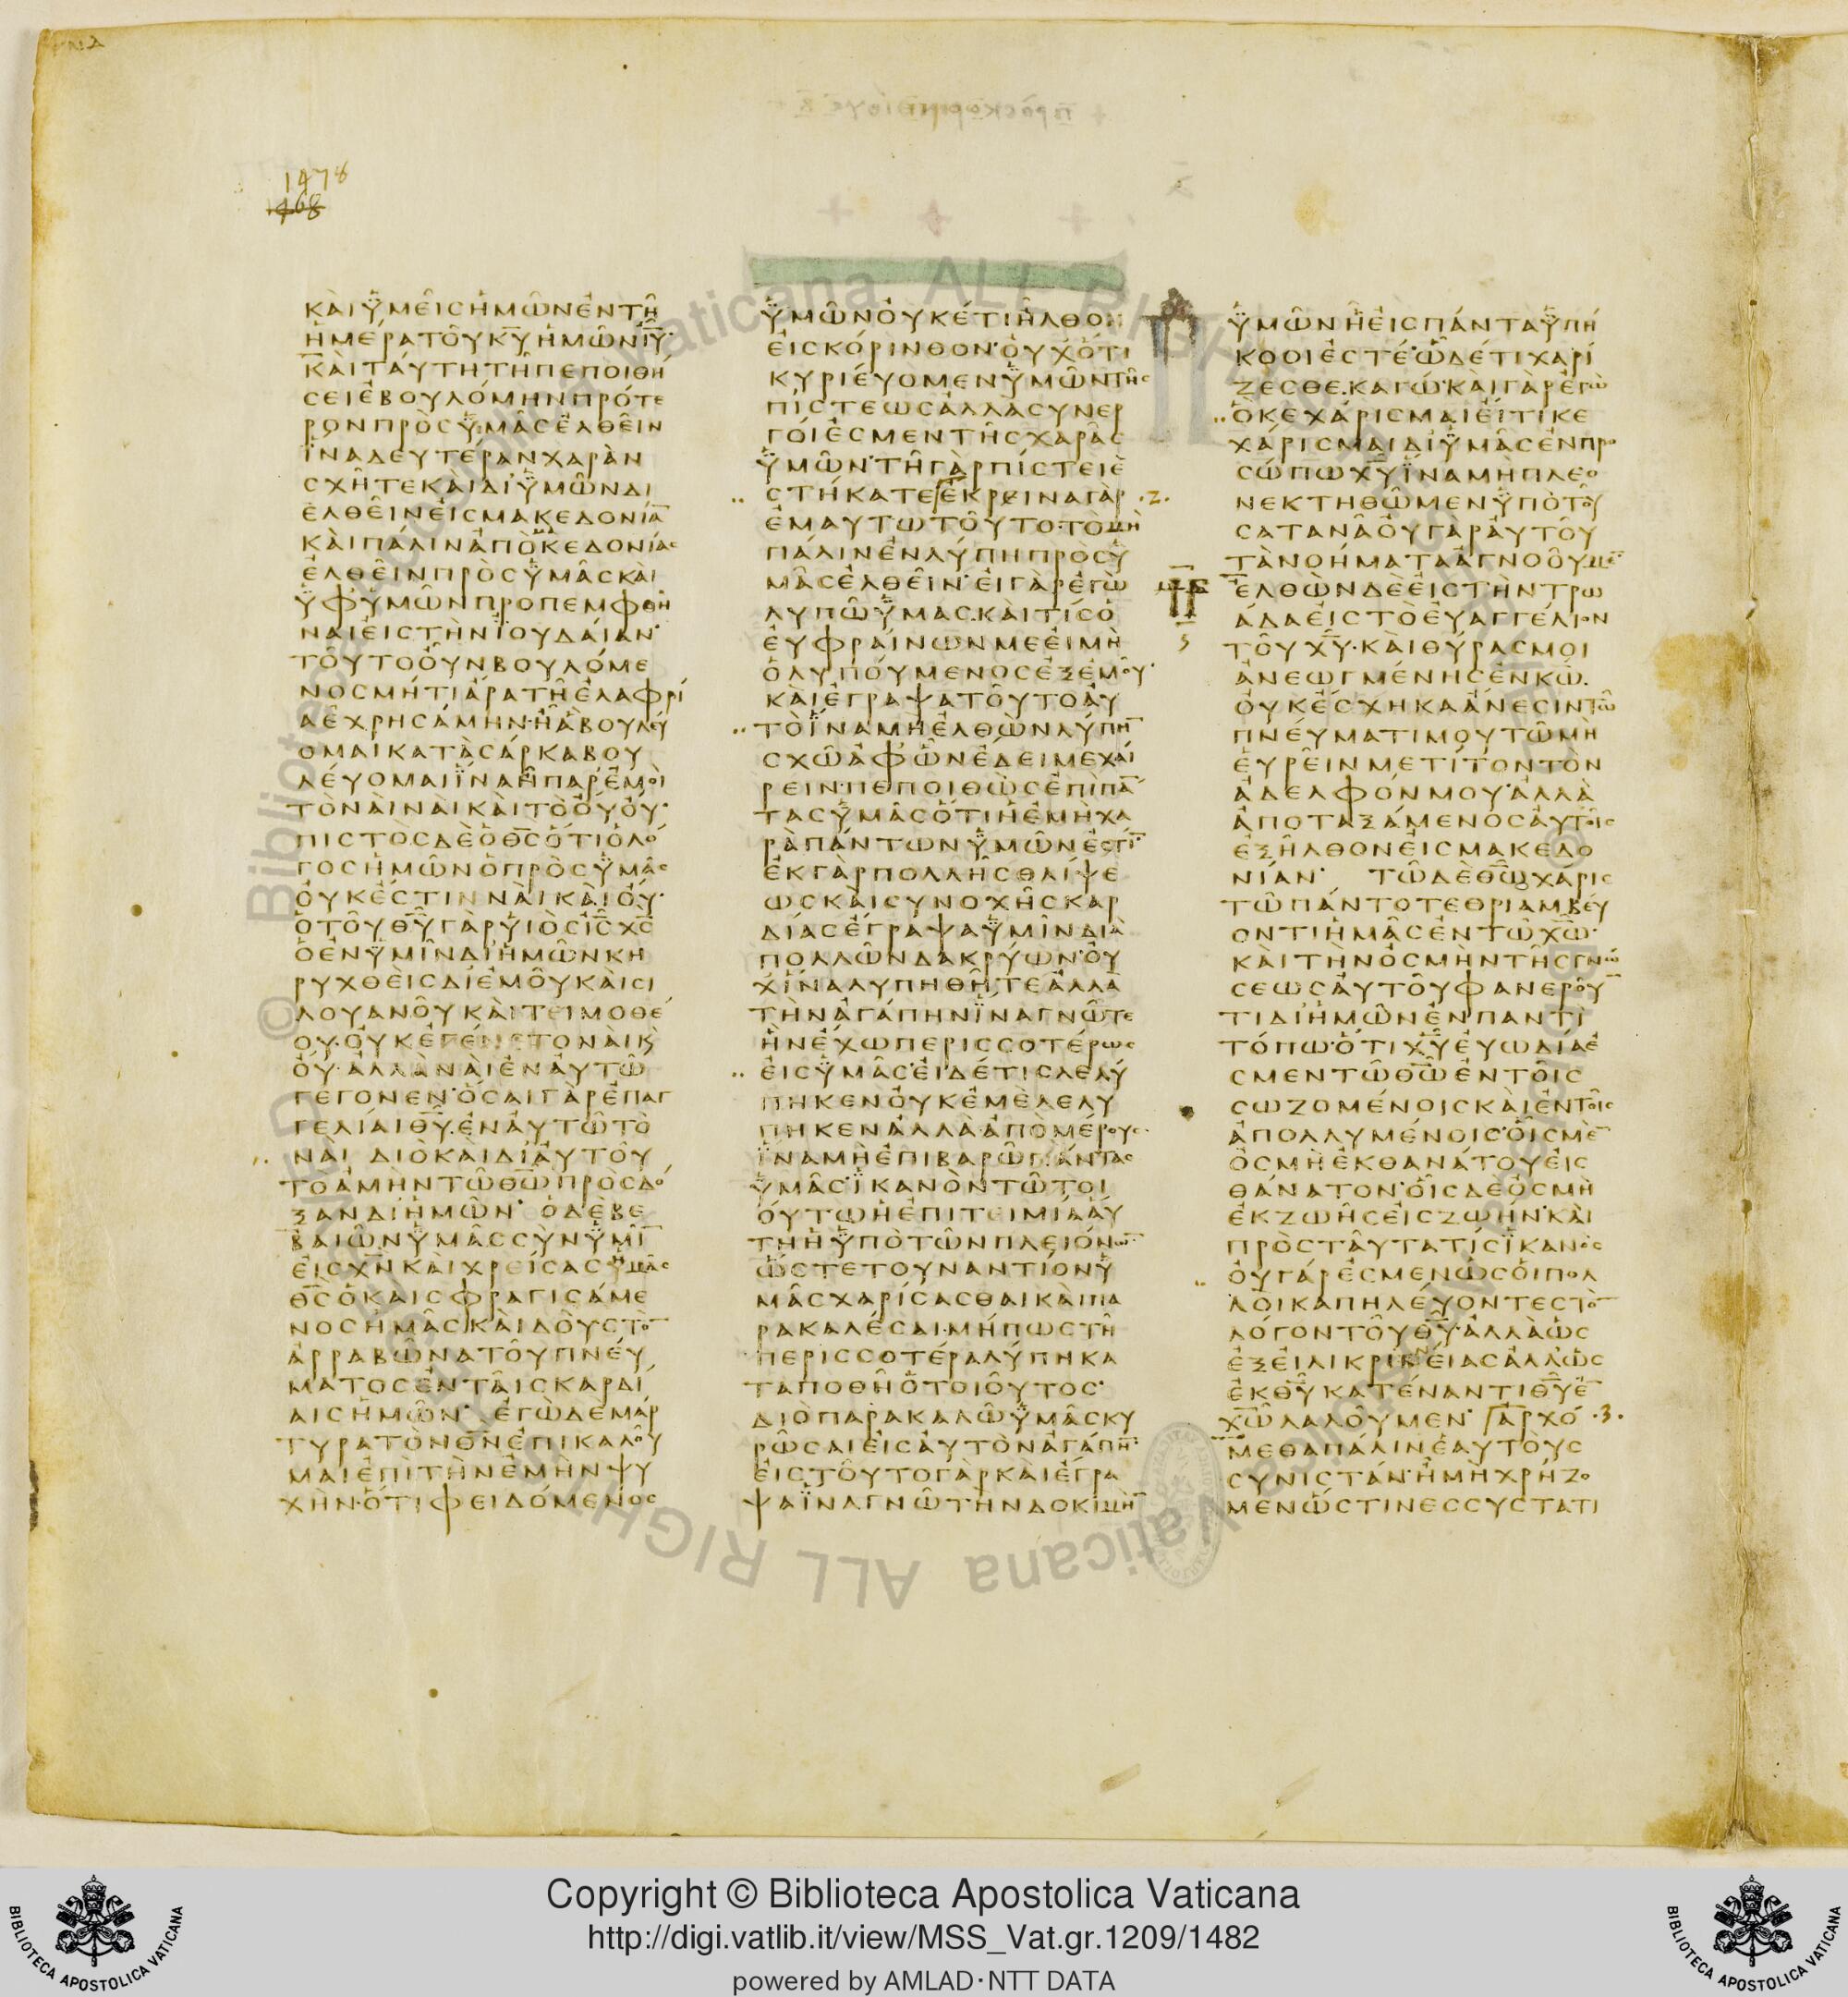 1478
468
ΚΑΙΫΜΕΙΣΗΜΩΝΕΝΤΗ
ΗΜΕΡΑΤΟΥΚΥΗΜΩΝΙΥ·
ΚΑΙΤΑΥΤΗΤΗΠΕΠΟΙΘΗ
ΣΕΙΕΒΟΥΛΟΜΗΝΠΡΟΤΕ
ΡΟΝΠΡΟΣΫΜΑΣΕΛΘΕΙΝ
ΪΝΑΔΕΥΤΕΡΑΝΧΑΡΑΝ
ΣΧΗΤΕΚΑΙΔΙΫΜΩΝΔΙ
ΕΛΘΕΙΝΕΙΣΜΑΚΕΔΟΝΙΑ̅
ΚΑΙΠΑΛΙΝΑΠΟΜΑΚΕΔΟΝΙΑΣ
ΕΛΘΕΙΝΠΡΟΣΫΜΑΣΚΑΙ
ΫΦΫΜΩΝΠΡΟΠΕΜΦΘΗ
ΝΑΙΕΙΣΤΗΝΪΟΥΔΑΙΑΝ·
ΤΟΥΤΟΟΥΝΒΟΥΛΟΜΕ
ΝΟΣΜΗΤΙΑΡΑΤΗΕΛΑΦΡΙ
ΑΕΧΡΗΣΑΜΗΝ·ΗΑΒΟΥΛΕΥ
ΟΜΑΙΚΑΤΑΣΑΡΚΑΒΟΥ
ΛΕΥΟΜΑΙΪΝΑΗΠΑΡΕΜΟΙ
ΤΟΝΑΙΝΑΙΚΑΙΤΟΟΥΟΥ·
ΠΙΣΤΟΣΔΕΟΘΣΟΤΙΟΛΟ
ΓΟΣΗΜΩΝΟΠΡΟΣΫΜΑΣ
ΟΥΚΕΣΤΙΝΝΑΙΚΑΙΟΥ·
ΟΤΟΥΘΥΓΑΡΥΙΟΣΙΣΧΣ
ΟΕΝΫΜΙΝΔΙΗΜΩΝΚΗ
ΡΥΧΘΕΙΣΔΙΕΜΟΥΚΑΙΣΙ
ΛΟΥΑΝΟΥΚΑΙΤΕΙΜΟΘΕ
ΟΥ·ΟΥΚΕΓΕΝΕΤΟΝΑΙΚ
ΟΥ·ΑΛΛΑΝΑΙΕΝΑΥΤΩ
ΓΕΓΟΝΕΝ·ΟΣΑΙΓΑΡΕΠΑΓ
ΓΕΛΙΑΙΘΥ·ΕΝΑΥΤΩΤΟ
ΝΑΙ ΔΙΟΚΑΙΔΙΑΥΤΟΥ
ΤΟΑΜΗΝΤΩΘΩΠΡΟΣΔΟ
ΞΑΝΔΙΗΜΩΝ· ΟΔΕΒΕ
ΒΑΙΩΝΫΜΑΣΣΥΝΫΜΙ̅
ΕΙΣΧΝΚΑΙΧΡΕΙΣΑΣΫΜΑΣ
ΘΣΟΚΑΙΣΦΡΑΓΙΣΑΜΕ
ΝΟΣΗΜΑΣΚΑΙΔΟΥΣΤΟ̅
ΑΡΡΑΒΩΝΑΤΟΥΠΝΕΥ
ΜΑΤΟΣΕΝΤΑΙΣΚΑΡΔΙ
ΑΙΣΗΜΩΝ· ΕΓΩΔΕΜΑΡ
ΤΥΡΑΤΟΝΘΝΕΠΙΚΑΛΟΥ
ΜΑΙΕΠΙΤΗΝΕΜΗΝΨΥ
ΧΗΝ·ΟΤΙΦΕΙΔΟΜΕΝΟΣ
ΫΜΩΝΟΥΚΕΤΙΗΛΘΟΝ
ΕΙΣΚΟΡΙΝΘΟΝ·ΟΥΧΟΤΙ
ΚΥΡΙΕΥΟΜΕΝΫΜΩΝΤΗΣ
ΠΙΣΤΕΩΣΑΛΛΑΣΥΝΕΡ
ΓΟΙΕΣΜΕΝΤΗΣΧΑΡΑΣ
ΫΜΩΝ·ΤΗΓΑΡΠΙΣΤΕΙΕ
ΣΤΗΚΑΤΕΕΚΡΕΙΝΑΓΑΡ ·Ζ·
ΕΜΑΥΤΩΤΟΥΤΟ·ΤΟΜΗ
ΠΑΛΙΝΕΝΛΥΠΗΠΡΟΣΫ
ΜΑΣΕΛΘΕΙΝ·ΕΙΓΑΡΕΓΩ
ΛΥΠΩΫΜΑΣ·ΚΑΙΤΙΣΟ
ΕΥΦΡΑΙΝΩΝΜΕΕΙΜΗ
ΟΛΥΠΟΥΜΕΝΟΣΕΞΕΜΟΥ·
ΚΑΙΕΓΡΑΨΑΤΟΥΤΟΑΥ
ΤΟΪΝΑΜΗΕΛΘΩΝΛΥΠΗ̅
ΣΧΩΑΦΩΝΕΔΕΙΜΕΧΑΙ
ΡΕΙΝ·ΠΕΠΟΙΘΩΣΕΠΙΠΑ̅
ΤΑΣΫΜΑΣΟΤΙΗΕΜΗΧΑ
ΡΑΠΑΝΤΩΝΫΜΩΝΕΣΤΙ̅·
ΕΚΓΑΡΠΟΛΛΗΣΘΛΙΨΕ
ΩΣΚΑΙΣΥΝΟΧΗΣΚΑΡ
ΔΙΑΣΕΓΡΑΨΑΫΜΙΝΔΙΑ
ΠΟΛΛΩΝΔΑΚΡΥΩΝ·ΟΥ
ΧΪΝΑΛΥΠΗΘΗΤΕΑΛΛΑ
ΤΗΝΑΓΑΠΗΝΪΝΑΓΝΩΤΕ
ΗΝΕΧΩΠΕΡΙΣΣΟΤΕΡΩΣ
ΕΙΣΫΜΑΣ·ΕΙΔΕΤΙΣΛΕΛΥ
ΠΗΚΕΝΟΥΚΕΜΕΛΕΛΥ
ΠΗΚΕΝΑΛΛΑ·ΑΠΟΜΕΡΟΥΣ·
ΪΝΑΜΗΕΠΙΒΑΡΩΠΑΝΤΑΣ
ΫΜΑΣ·ΪΚΑΝΟΝΤΩΤΟΙ
ΟΥΤΩΗΕΠΙΤΕΙΜΙΑΑΥ
ΤΗΗΫΠΟΤΩΝΠΛΕΙΟΝΩ̅·
ΩΣΤΕΤΟΥΝΑΝΤΙΟΝΫ
ΜΑΣΧΑΡΙΣΑΣΘΑΙΚΑΙΠΑ
ΡΑΚΑΛΕΣΑΙ·ΜΗΠΩΣΤΗ
ΠΕΡΙΣΣΟΤΕΡΑΛΥΠΗΚΑ
ΤΑΠΟΘΗΟΤΟΙΟΥΤΟΣ·
ΔΙΟΠΑΡΑΚΑΛΩΫΜΑΣΚΥ
ΡΩΣΑΙΕΙΣΑΥΤΟΝΑΓΑΠΗ̅·
ΕΙΣΤΟΥΤΟΓΑΡΚΑΙΕΓΡΑ
ΨΑΪΝΑΓΝΩΤΗΝΔΟΚΙΜΗ̅
ΫΜΩΝΗΕΙΣΠΑΝΤΑΫΠΗ
ΚΟΟΙΕΣΤΕ·ΩΔΕΤΙΧΑΡΙ
ΖΕΣΘΕ·ΚΑΓΩ·ΚΑΙΓΑΡΕΓΩ
ΟΚΕΧΑΡΙΣΜΑΙΕΙΤΙΚΕ
ΧΑΡΙΣΜΑΙΔΙΫΜΑΣΕΝΠΡΟ
ΣΩΠΩΧΥΪΝΑΜΗΠΛΕΟ
ΝΕΚΤΗΘΩΜΕΝΫΠΟΤΟΥ
ΣΑΤΑΝΑΟΥΓΑΡΑΥΤΟΥ
ΤΑΝΟΗΜΑΤΑΑΓΝΟΟΥΜΕ̅
ΕΛΘΩΝΔΕΕΙΣΤΗΝΤΡΩ
ΑΔΑΕΙΣΤΟΕΥΑΓΓΕΛΙΟΝ
ΤΟΥΧΥ·ΚΑΙΘΥΡΑΣΜΟΙ
ΑΝΕΩΓΜΕΝΗΣΕΝΚΩ·
ΟΥΚΕΣΧΗΚΑΑΝΕΣΙΝΤΩ
ΠΝΕΥΜΑΤΙΜΟΥΤΩΜΗ
ΕΥΡΕΙΝΜΕΤΙΤΟΝΤΟΝ
ΑΔΕΛΦΟΝΜΟΥ·ΑΛΛΑ
ΑΠΟΤΑΞΑΜΕΝΟΣΑΥΤΟΙΣ
ΕΞΗΛΘΟΝΕΙΣΜΑΚΕΔΟ
ΝΙΑΝ· ΤΩΔΕΘΩΧΑΡΙΣ
ΤΩΠΑΝΤΟΤΕΘΡΙΑΜΒΕΥ
ΟΝΤΙΗΜΑΣΕΝΤΩΧΩ·
ΚΑΙΤΗΝΟΣΜΗΝΤΗΣΓΝΩ
ΣΕΩΣΑΥΤΟΥΦΑΝΕΡΟΥ̅
ΤΙΔΙΗΜΩΝΕΝΠΑΝΤΙ
ΤΟΠΩ·ΟΤΙΧΥΕΥΩΔΙΑΕ
ΣΜΕΝΤΩΘΩΕΝΤΟΙΣ
ΣΩΖΟΜΕΝΟΙΣΚΑΙΕΝΤΟΙΣ
ΑΠΟΛΛΥΜΕΝΟΙΣ·ΟΙΣΜΕ̅
ΟΣΜΗΕΚΘΑΝΑΤΟΥΕΙΣ
ΘΑΝΑΤΟΝ·ΟΙΣΔΕΟΣΜΗ
ΕΚΖΩΗΣΕΙΣΖΩΗΝ·ΚΑΙ
ΠΡΟΣΤΑΥΤΑΤΙΣΪΚΑΝΟΣ
ΟΥΓΑΡΕΣΜΕΝΩΣΟΙΠΟΛ
ΛΟΙΚΑΠΗΛΕΥΟΝΤΕΣΤΟ̅
ΛΟΓΟΝΤΟΥΘΥ·ΑΛΛΑΩΣ
ΕΞΕΙΛΙΚΡΙΝΕΙΑΣΑΛΛΩΣ
ΕΚΘΥΚΑΤΕΝΑΝΤΙΘΥΕ̅
ΧΩΛΑΛΟΥΜΕΝ· ΑΡΧΟ ·3·
ΜΕΘΑΠΑΛΙΝΕΑΥΤΟΥΣ
ΣΥΝΙΣΤΑΝ·ΗΜΗΧΡΗΖΟ
ΜΕΝΩΣΤΙΝΕΣΣΥΣΤΑΤΙ
Copyright © Biblioteca Apostolica Vaticana
http://digi.vatlib.it/view/MSS_Vat.gr.1209/1482
powered by AMLAD·NTT DATA
BIBLIOTECA APOSTOLICA VATICANA
BIBLIOTECA APOSTOLICA VATICANA